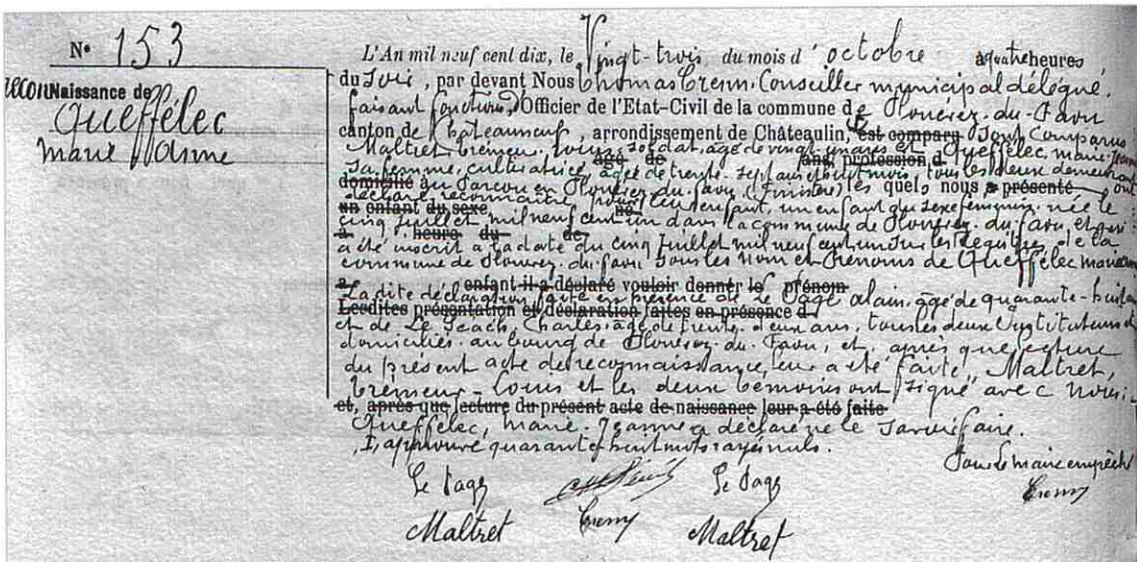 N° 153
reconNaissance de
Queffélec
marie Anne
L'An mil neuf cent dix, le Vingt-trois du mois d'octobre à quatre heures
du Soir, par devant Nous Thomas Crenn, Conseiller municipal délégué,
faisant fonctions d'Officier de l'Etat-Civil de la commune de Plonévez-du-Faou
canton de Châteauneuf, arrondissement de Châteaulin, est comparu Sont Comparus
Maltret Louis, soldat, âgé de vingt ans et Queffélec, marie-Jeanne
âgé de ans, profession d
Sa femme, cultivatrice, âgée de trente-sept ans et huit mois, tous les deux demeurant
domicilié au en Plonévez-du-Faou (Finistère) les quels nous a présenté ont
déclaré reconnaître pour leur enfant, un enfant du sexe féminin née le
un enfant du sexe né
cinq juillet mil neuf cent un dans la commune de Plonévez-du-Faou, et qui
à heure du de
a été inscrit à la date du cinq juillet mil neuf cent un sur les registres de la
commune de Plonévez-du-Faou sous les nom et Prénoms de Queffélec marie anne
enfant il a déclaré vouloir donner le prénom
La dite déclaration faite en présence de Le Page alain, âgé de quarante-huit ans
Lesdites présentation et déclaration faites en présence d
et de Le Scach, Charles, âgé de trente-deux ans, tous les deux Instituteurs
domiciliés au bourg de Plonévez-du-Faou, et, après que lecture
du présent acte de reconnaissance leur a été faite, Maltret,
Louis et les deux témoins ont signé avec Nous.
et, après que lecture du présent acte de naissance leur a été faite
Queffélec, marie-Jeanne a déclaré ne le savoir faire.
approuvé quarante huit mots rayés nuls.
Pour le maire empêché
Le Page Le Page Crenn
Maltret Crenn Maltret